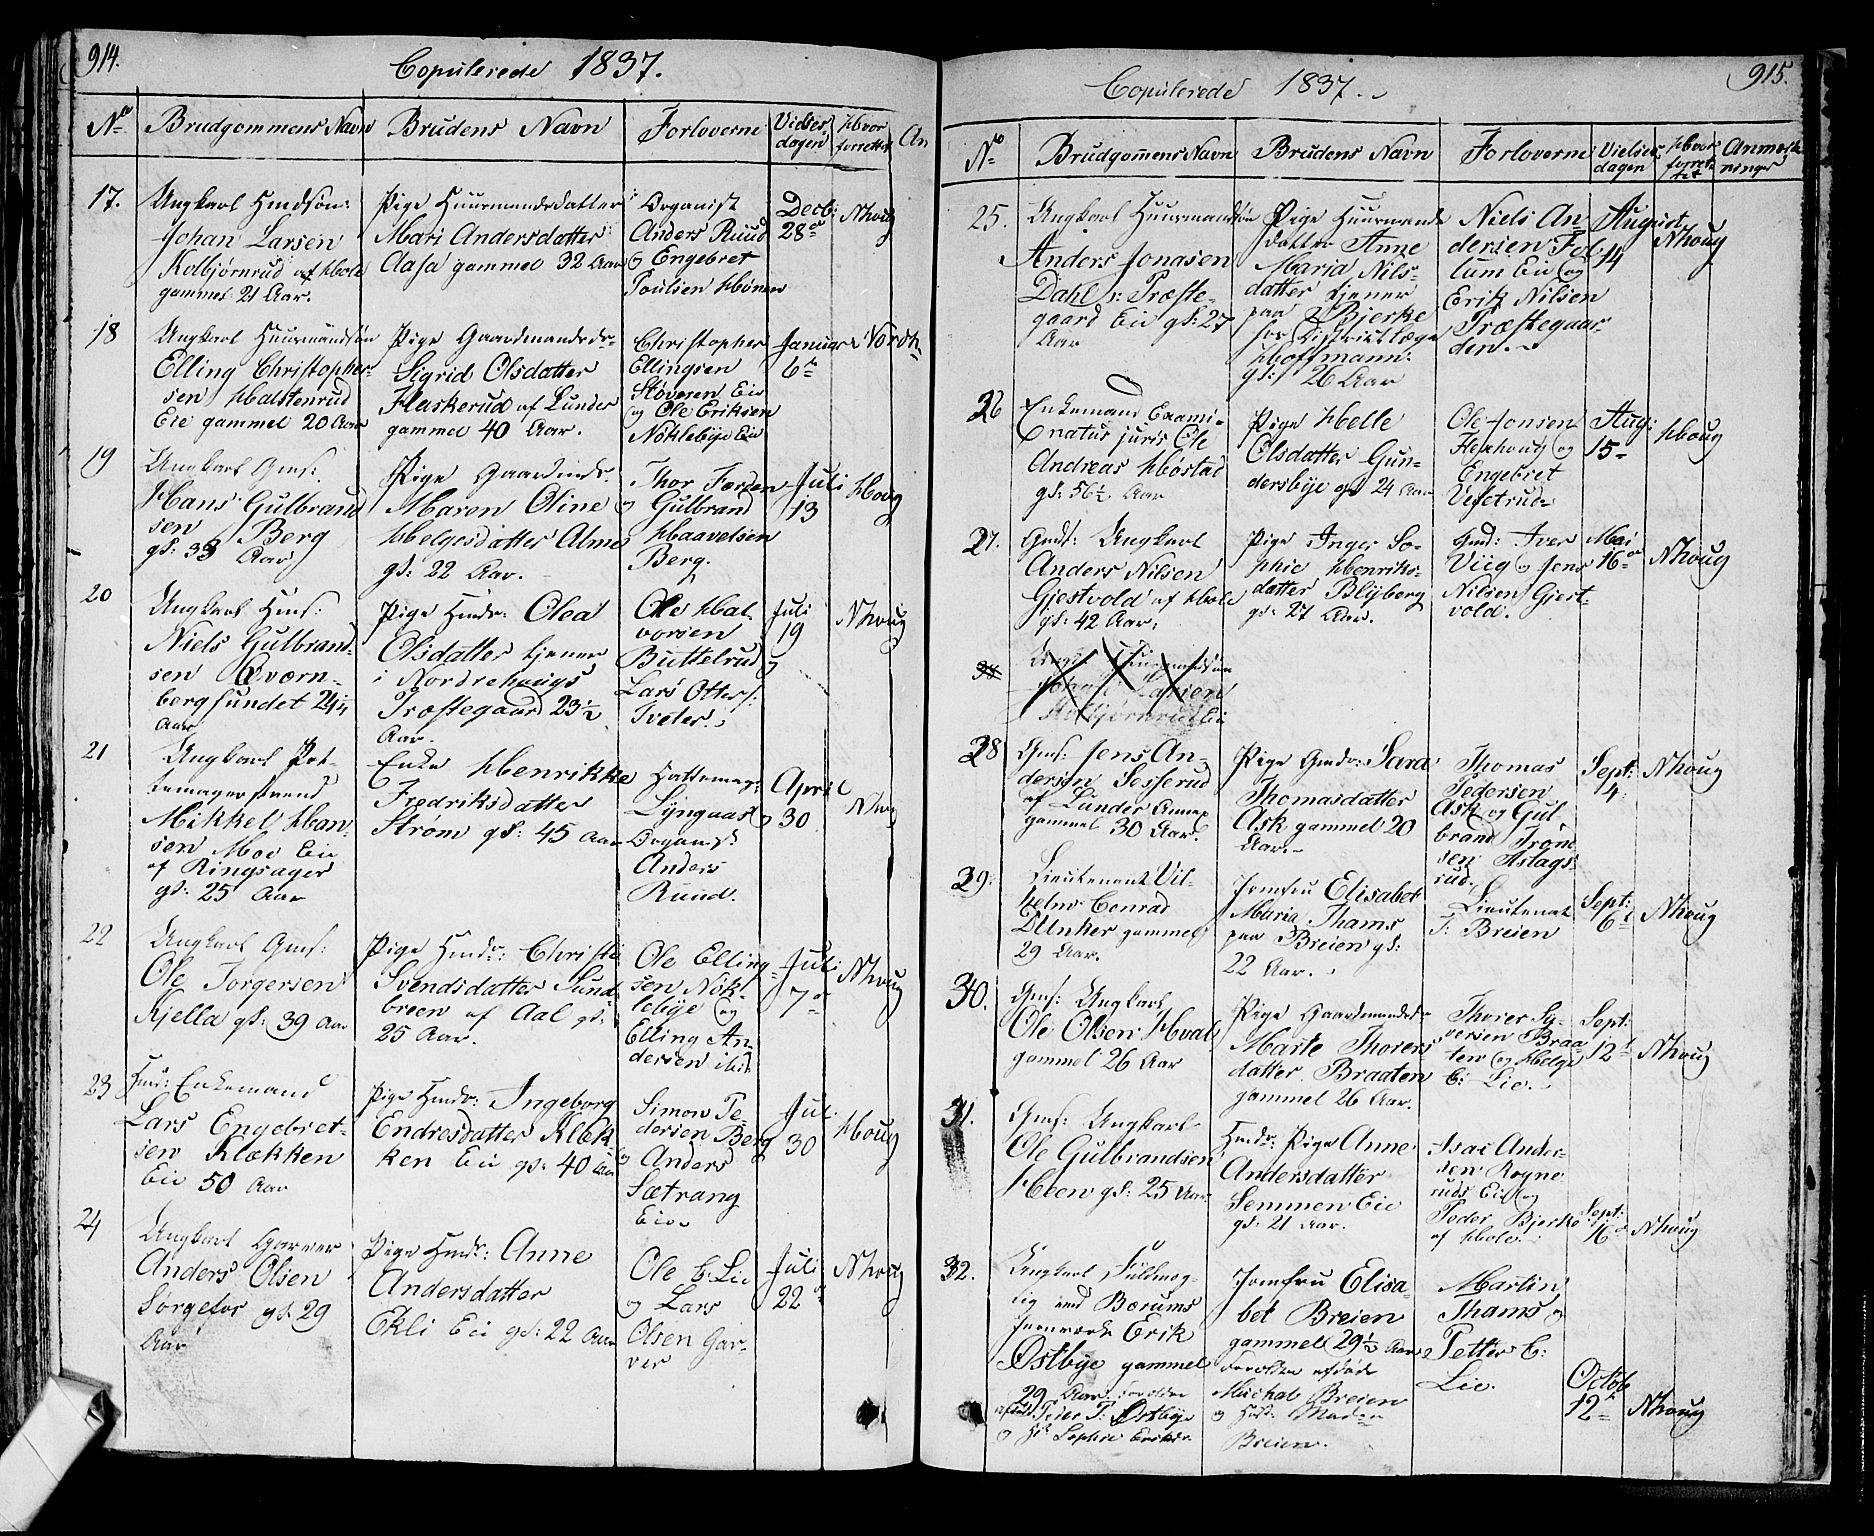 914.
Copulerede 1837.
No Brudgommens Navn Brudens Navn Forloverne Vielses dagen Hvor forrettet An
17. Ungkarl Huusøn:
Johan Larsen
Kolbjørnrud af Hole
gammel 21 Aar.
Pige Huusmandsdatter
Mari Andersdatter
Aasa gammel 32 Aar
Organist
Anders Ruud
og Engebret
Poulsen Hönen
Decb:
28de
NHoug
18 Ungkarl Huusmandsøn
Elling Christopher-
sen Halstenrud
Eie gammel 20 Aar
Pige Gaardmandsdr-
Sigrid Olsdatter
Flaskerud af Lunder
gammel 40 Aar.
Christopher
Ellingsen
Støveren Eie
og Ole Eriksen
Nøklebye Eie
Januar
6te
Nordh.
19 Ungkarl Gmf:
Hans Gulbrand
sen Berg
gl: 33 Aar
Pige Gaardmdr.
Maren Oline
Helgesdatter Alme
gl: 22 Aar.
Thor
og Gulbrand
Haavelsen
Berg.
Juli
13
Houg
20 Ungkarl Hmf:
Niels Gulbrand-
sen Qværn-
bergsundet 24 1/4
Aar
Pige Hmdr: Olea
Olsdatter tjener
i Nordrehougs
Præstegaard 23 1/2
Aar.
Ole Hal-
vorsen
Buttelrud og
Lars Otters:
Tveter.
Juli
19
NHoug
21 Ungkarl Pot-
temagersvend
Mikkel Han
sen Moe Eie
af Ringsager
gl: 25 Aar
Enke Henrikke
Fredriksdatter
Strøm gl: 45 Aar
Hattemag:
Lyngaas og
Organist
Anders
Ruud.
April
30
NHoug
22 Ungkarl Gmf:
Ole Torgersen
Kjella gl: 39 Aar
Pige Hmdr: Christi
Svendsdatter Sund-
breen af Aal gl:
25 Aar.
Ole Elling-
sen Nøk-
lebye og
Elling An-
dersen ibid
Juli
7de
NHoug
23 Hmd: Enkemand
Lars Engebret-
sen Klækken
Eie 50 Aar
Pige Hmdr: Ingeborg
Endresdatter Klek
ken Eie gl: 40 Aar
Simon Pe-
dersen Berg
og Anders
Sætrang
Eie
Jul.
30
Houg
24 Ungkarl Garver
Anders Olsen
Sørgefos gl: 29
Aar
Pige Hmdr: Anne
Andersdatter
Ekli Eie gl: 22 Aar
Ole C: Lie
og Lars
Olsen Gar-
ver
Juli
22de
NHoug
915.
Copulerede 1837.
No Brudgommens Navn Brudens Navn Forloverne Vielses dagen Hvor forret- tet Anmerk- ninger
25. Ungkarl Huusmandsøn
Anders Jonasen
Dahl i Præste-
gaard Eie gl: 27
Aar
Pige Huusmands
datter Anne
Maria Nils-
datter tjener
paa Bjerke
hos Districtslæge
Hoffmann:
gl: 26 Aar
Niels An
dersen Fol
lum Eie og
Erik Nilsen
Præstegaar-
den.
August
14
NHoug
26 Enkemand Exami-
natus juris Ole
Andreas Høstad
gl: 56 1/2 Aar
Pige Helle
Olsdatter Gun-
dersbye gl: 24 Aar
Ole Jonsen
og
Engebret
Vesetrud
Aug:
15
Houg
27. Gmd: Ungkarl
Anders Nilsen
Gjestvold af Hole
gl: 42 Aar:
Pige Inger So-
phie Henriks-
datter Blyberg
gl: 27 Aar.
Gmd: Iver
Viig og Jens
Nilsen Gjest-
vold.
Mai
16de
NHoug
Johan Larsen
Kolbjørnrud Eie
28 Gmf: Jens An-
dersen Sosserud
af Lunder Annex
gammel 30 Aar.
Pige Gmdr: Sara
Thomasdatter
Ask gammel 20
Aar.
Thomas
Pedersen
Ask og Gul
brand Trøne
sen Aslags-
rud.
Sept:
4:
NHoug
29: Lieutenant Vil-
helm Conrad
Dunker gammel
29 Aar.
Jomfru Elisabet
Maria Thams
paa Breien gl:
22 Aar.
Lieutenat
T: Breien
Sept:
6te
NHoug
30. Gmf: Ungkarl
Ole Olsen Hval
gammel 26 Aar
Pige Gaardmandsdr
Marte Thorers
datter Braaten
gammel 26 Aar.
Thorer Sy-
versen Braa
ten og Helge
C: Lie.
Sept:
12te
NHoug
31. Gmf: Ungkarl
Ole Gulbrandsen
Heen gl: 25 Aar
Hmdr: Pige Anne
Andersdatter
Semmen Eie
gl: 21 Aar.
Isac Ander-
sen Rogne
ruds Eie og
Peder Bjerke
af Hole.
Sept:
16de
NHoug
32. Ungkarl Fuldmæg-
tig ved Bærums
Jernværk Erik
Østbye gammel
29 Aar. Forældre
afdøde Peder P: Østbye
og Hst: Sophie
Jomfru Elisa
bet Breien
gammel 29 1/2 Aar
Forældre afdøde
Michal Breien
og Hst: Maria
Breien.
Martin
Thams og
Petter C:
Lie.
Octob
12te
NHoug